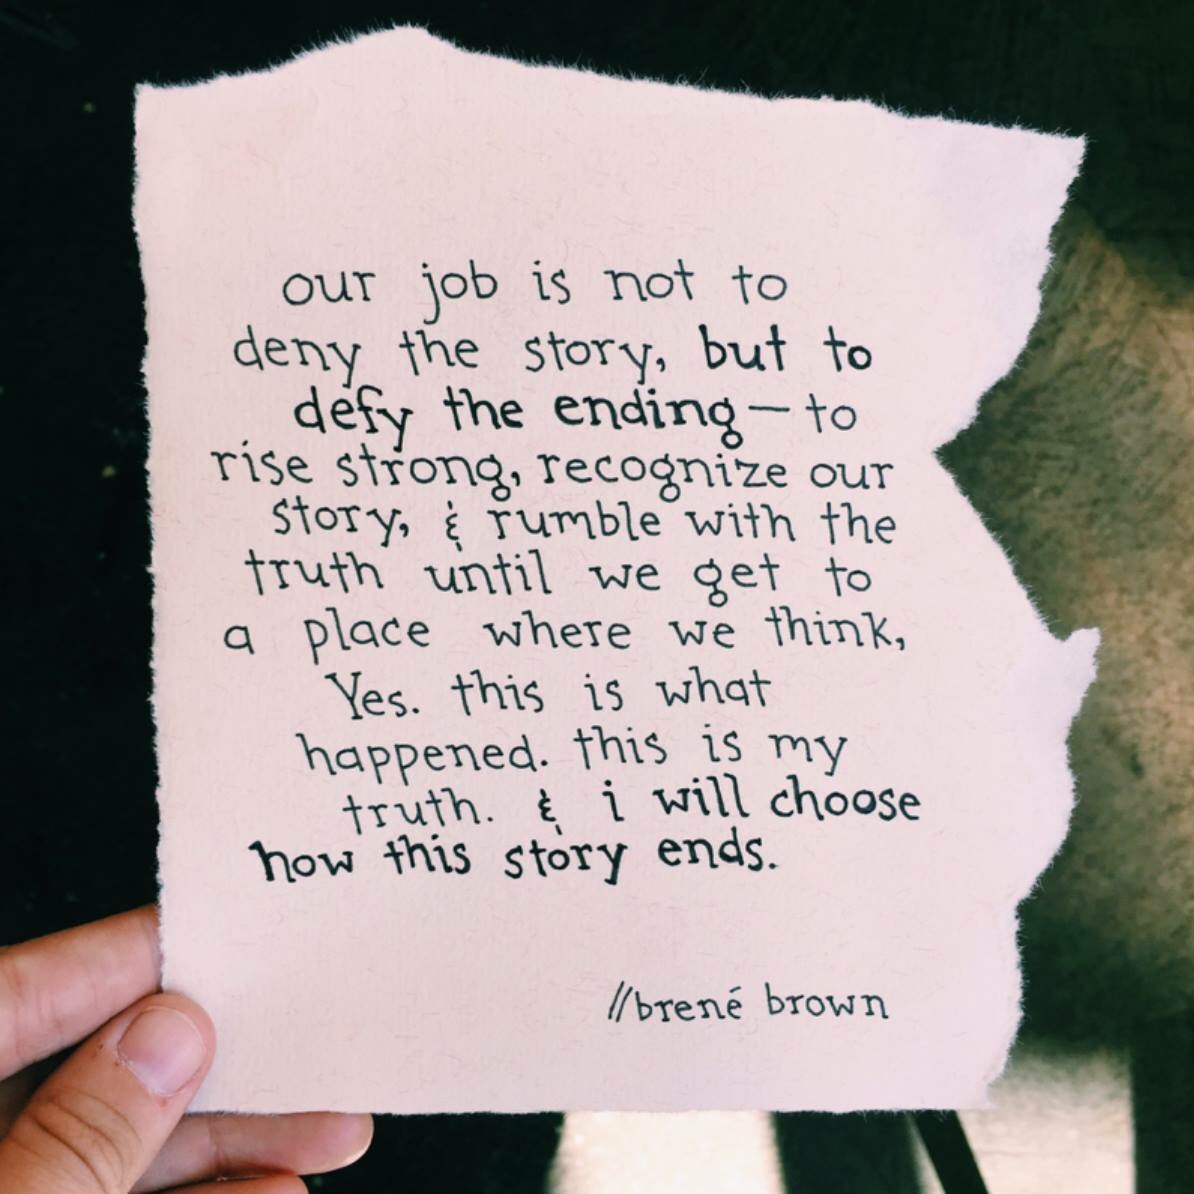 our job is not to
deny the story, but to
defy the ending — to
rise strong, recognize our
story, & rumble with the
truth until we get to
a place where we think,
Yes. this is what
happened. this is my
truth. & i will choose
how this story ends.
//brené brown